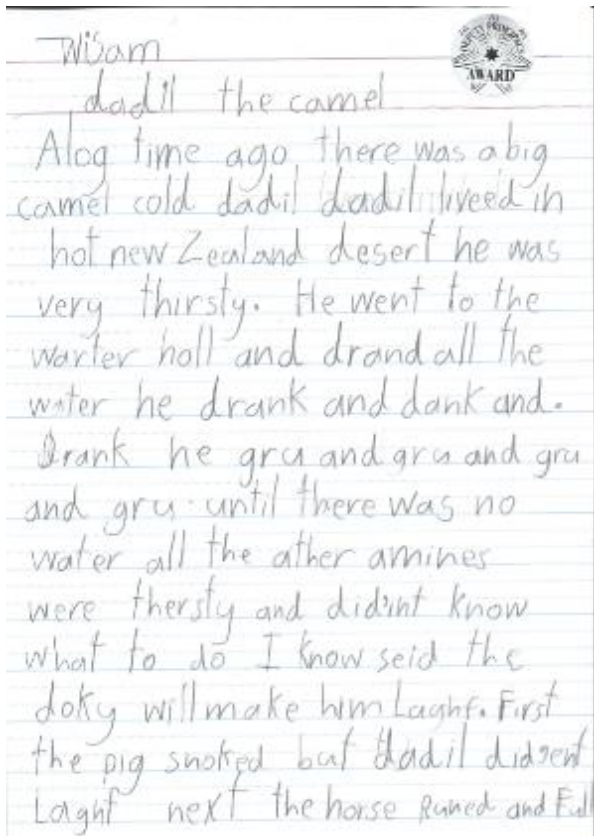 Wisam
DEPUTY PRINCIPAL'S
AWARD
dadil the camel
Alog time ago there was a big
camel cold dadil dadil liveed in
hot new Zealand desert he was
very thirsty. He went to the
warter holl and drand all the
water he drank and dank and.
Drank he gru and gru and gru
and gru until there was no
water all the ather amines
were thersty and did'int know
what to do I know seid the
doky will make him Laghf. First
the pig snoked but dadil didsent
Laghf next the horse Runed and Full